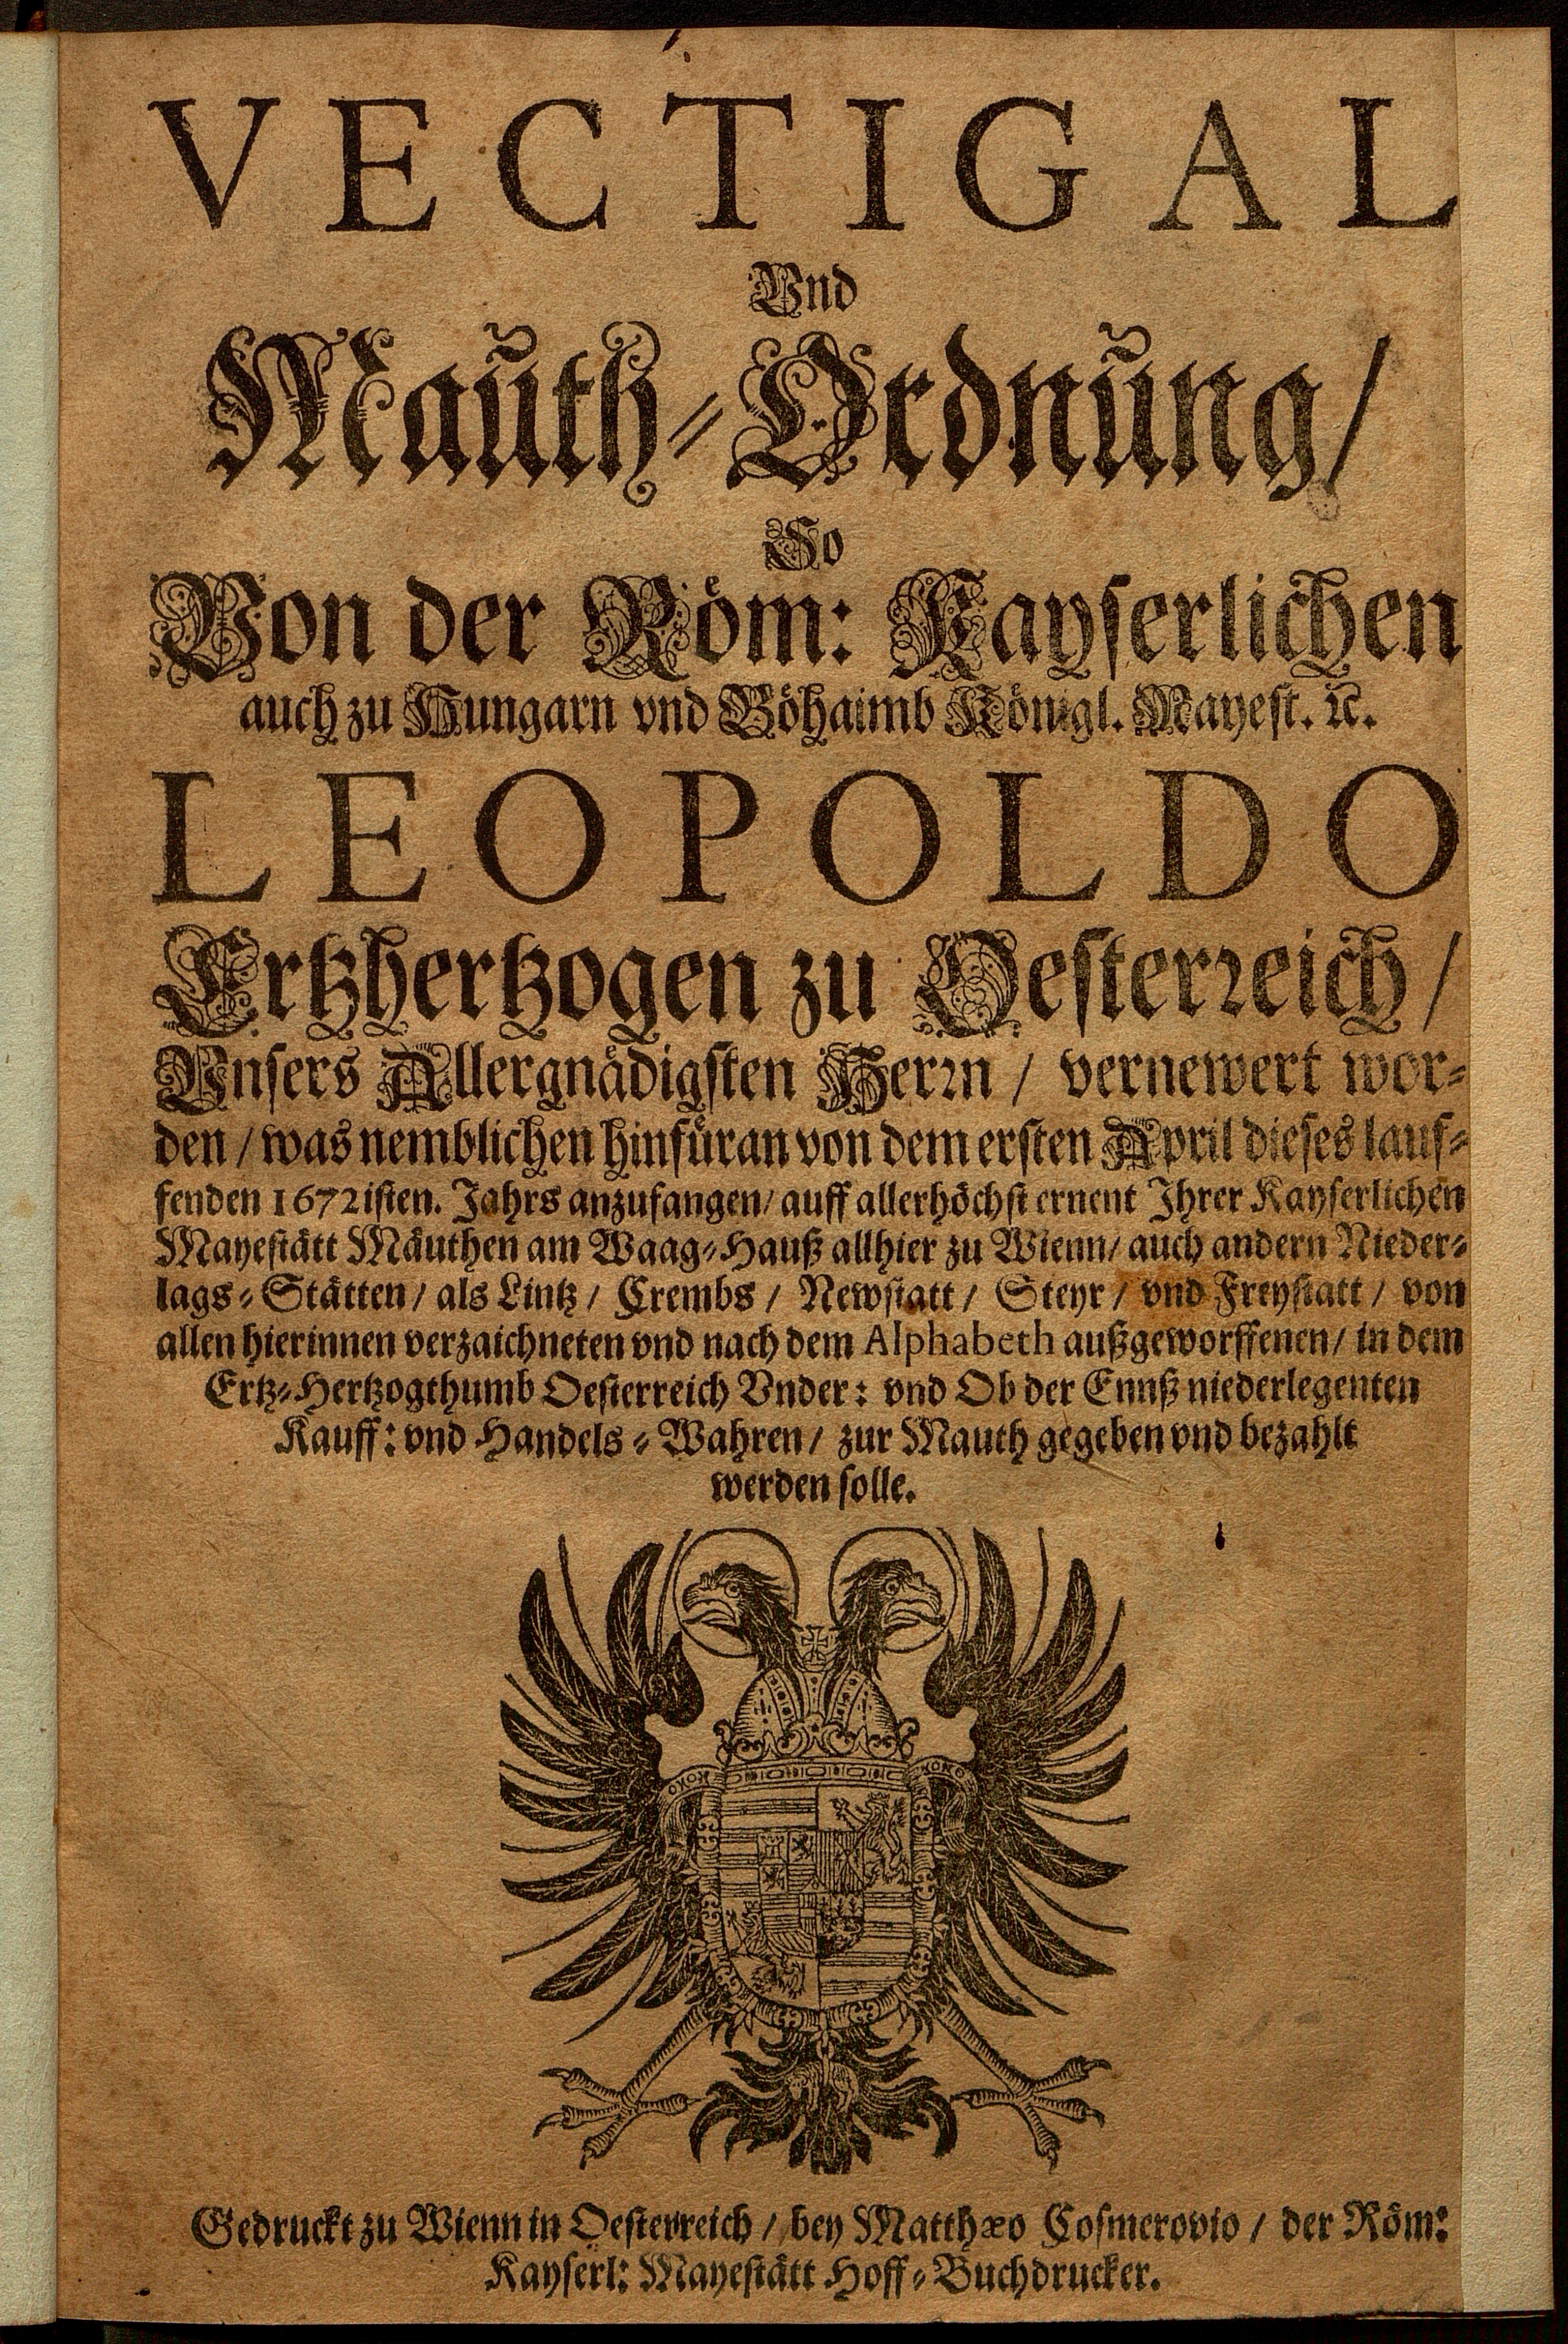 VECTIGAL
Vnd
Mauth-Ordnung/
So
Von der Röm: Kayserlichen
auch zu Hungarn vnd Böhaimb Königl. Mayest. ꝛc.
LEOPOLDO
Ertzhertzogen zu Oesterꝛeich /
Vnsers Allergnädigsten Herꝛn / vernewert wor-
den / was nemblichen hinfüran von dem ersten April dieses lauf-
fenden 1672isten. Jahrs anzufangen / auff allerhöchst ernent Ihrer Kayserlichen
Mayestätt Mäuthen am Waag-Hauß allhier zu Wienn / auch andern Nieder-
lags-Stätten / als Lintz / Crembs / Newstatt / Steyr / vnd Freystatt / von
allen hierinnen verzaichneten vnd nach dem Alphabeth außgeworffenen / in dem
Ertz-Hertzogthumb Oesterreich Vnder: vnd Ob der Ennß niederlegenten
Kauff: vnd Handels-Wahren / zur Mauth gegeben vnd bezahlt
werden solle.
Gedruckt zu Wienn in Oesterreich / bey Matthæo Cosmerovio / der Röm:
Kayserl: Mayestätt Hoff-Buchdrucker.